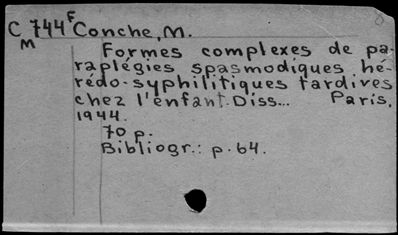 C 744 F Conche, M.
M
Formes complexes de pa-
raplégies spasmodiques hé-
rédo-syphilitiques tardives
chez l'enfant. Diss... Paris,
1944.
70 p.
Bibliogr.: p. 64.